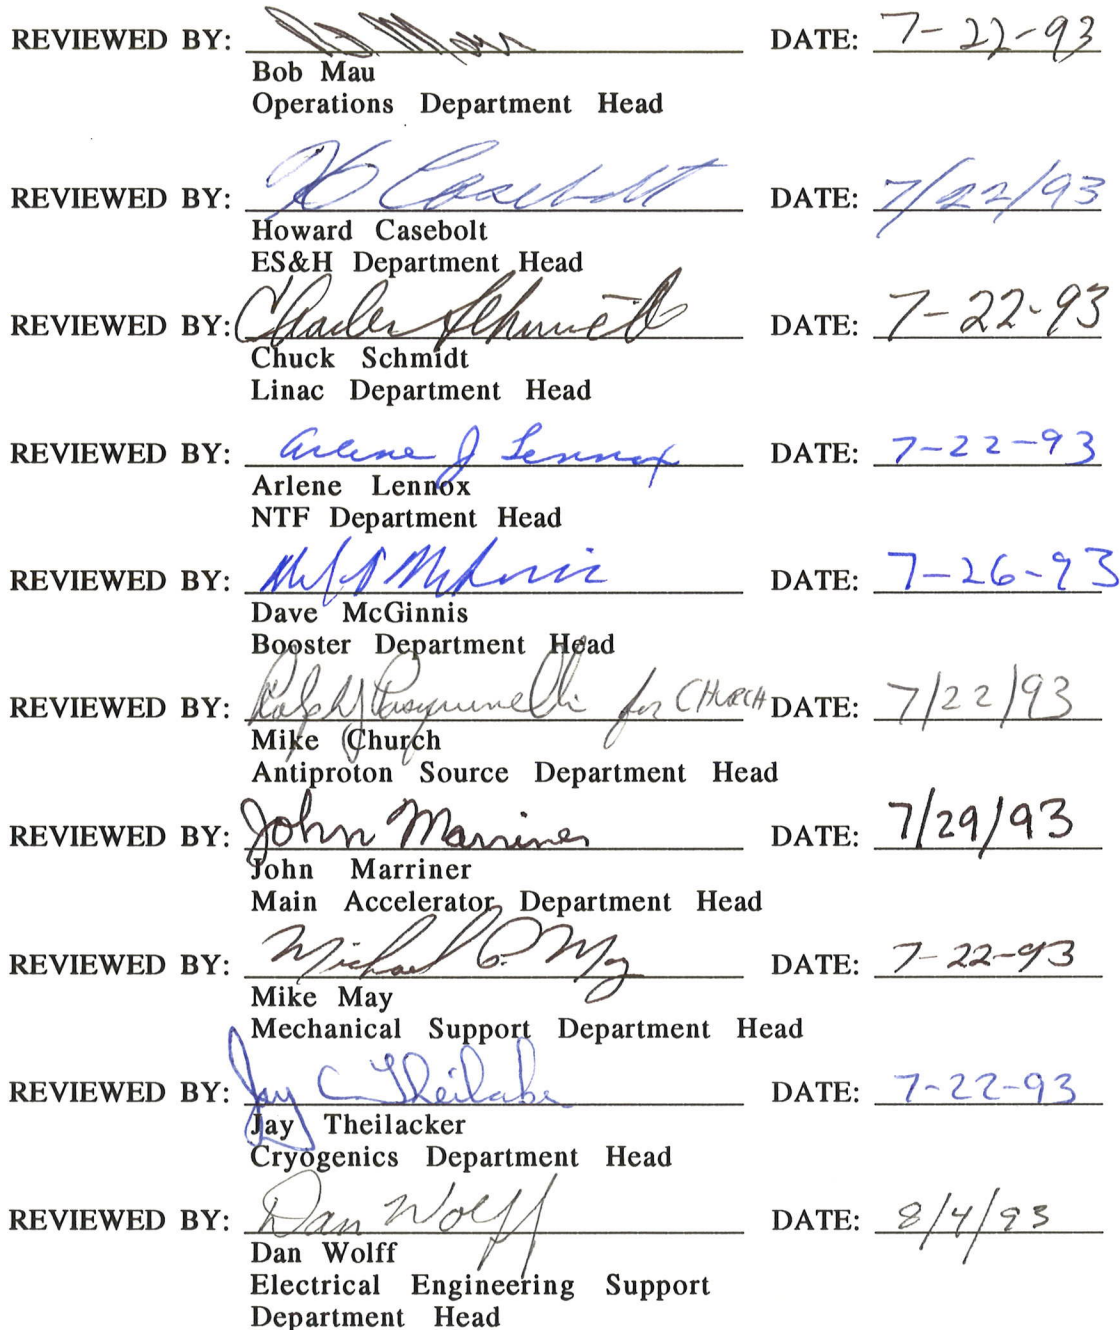 REVIEWED BY: Bob Mau DATE: 7-22-93
Bob Mau
Operations Department Head
REVIEWED BY: H Casebolt DATE: 7/22/93
Howard Casebolt
ES&H Department Head
REVIEWED BY: Charles Schmidt DATE: 7-22-93
Chuck Schmidt
Linac Department Head
REVIEWED BY: Arlene J Lennox DATE: 7-22-93
Arlene Lennox
NTF Department Head
REVIEWED BY: McGinnis DATE: 7-26-93
Dave McGinnis
Booster Department Head
REVIEWED BY: Ralph J Pasquinelli for CHURCH DATE: 7/22/93
Mike Church
Antiproton Source Department Head
REVIEWED BY: John Marriner DATE: 7/29/93
John Marriner
Main Accelerator Department Head
REVIEWED BY: Michael P. May DATE: 7-22-93
Mike May
Mechanical Support Department Head
REVIEWED BY: Jay C Theilacker DATE: 7-22-93
Jay Theilacker
Cryogenics Department Head
REVIEWED BY: Dan Wolff DATE: 8/4/93
Dan Wolff
Electrical Engineering Support
Department Head